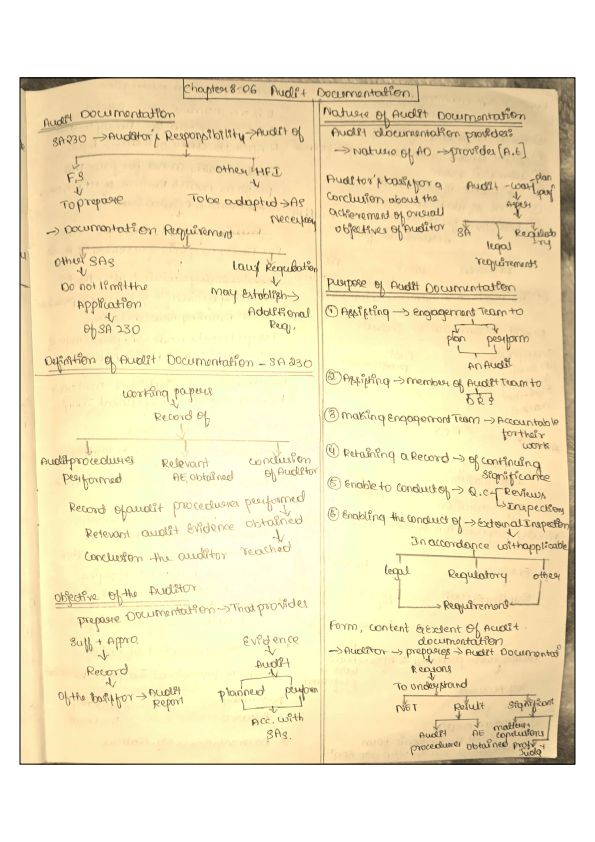 Chapter 8-06 Audit Documentation.
Audit Documentation
SA 230 → Auditor's Responsibility → Audit of
F.S. Other HFI
To prepare To be adapted → As
Necessary
→ Documentation Requirement
Other SAs Law/Regulation
Do not limit the May Establish →
Application Additional
Of SA 230 Req.
Definition of Audit Documentation - SA 230
Working papers
Record of
Audit procedures Relevant Conclusion
Performed AE Obtained Of Auditor
Record of audit procedures performed
Relevant audit Evidence obtained
Conclusion the auditor reached
Objective of the Auditor
prepare Documentation → That provides
Suff + Appro. Evidence
Record Audit
Of the basis for → Audit planned perform
Report
Acc. with
SAs.
Nature of Audit Documentation
Audit documentation provides
→ Nature of AD → provides [A.E]
Auditor's basis for a Audit - was plan
conclusion about the
achievement of overall SA Regulatory
objectives of Auditor legal
requirements
Purpose of Audit Documentation
① Assisting → Engagement Team to
plan perform
An Audit
② Assisting → member of Audit Team to
D R S
③ making Engagement Team → Accountable
for their
work
④ Retaining a Record → of continuing
Significance
⑤ Enable to conduct of → Q.C Reviews
Inspection
⑥ Enabling the conduct of → External Inspection
In accordance with applicable
legal Regulatory other
Requirement
Form, content & Extent of Audit
documentation
→ Auditor → prepares → Audit Documentat
Reasons
To understand
NET Result Significant
Audit AE matters
procedures obtained conclusions
Prof.
Judg.